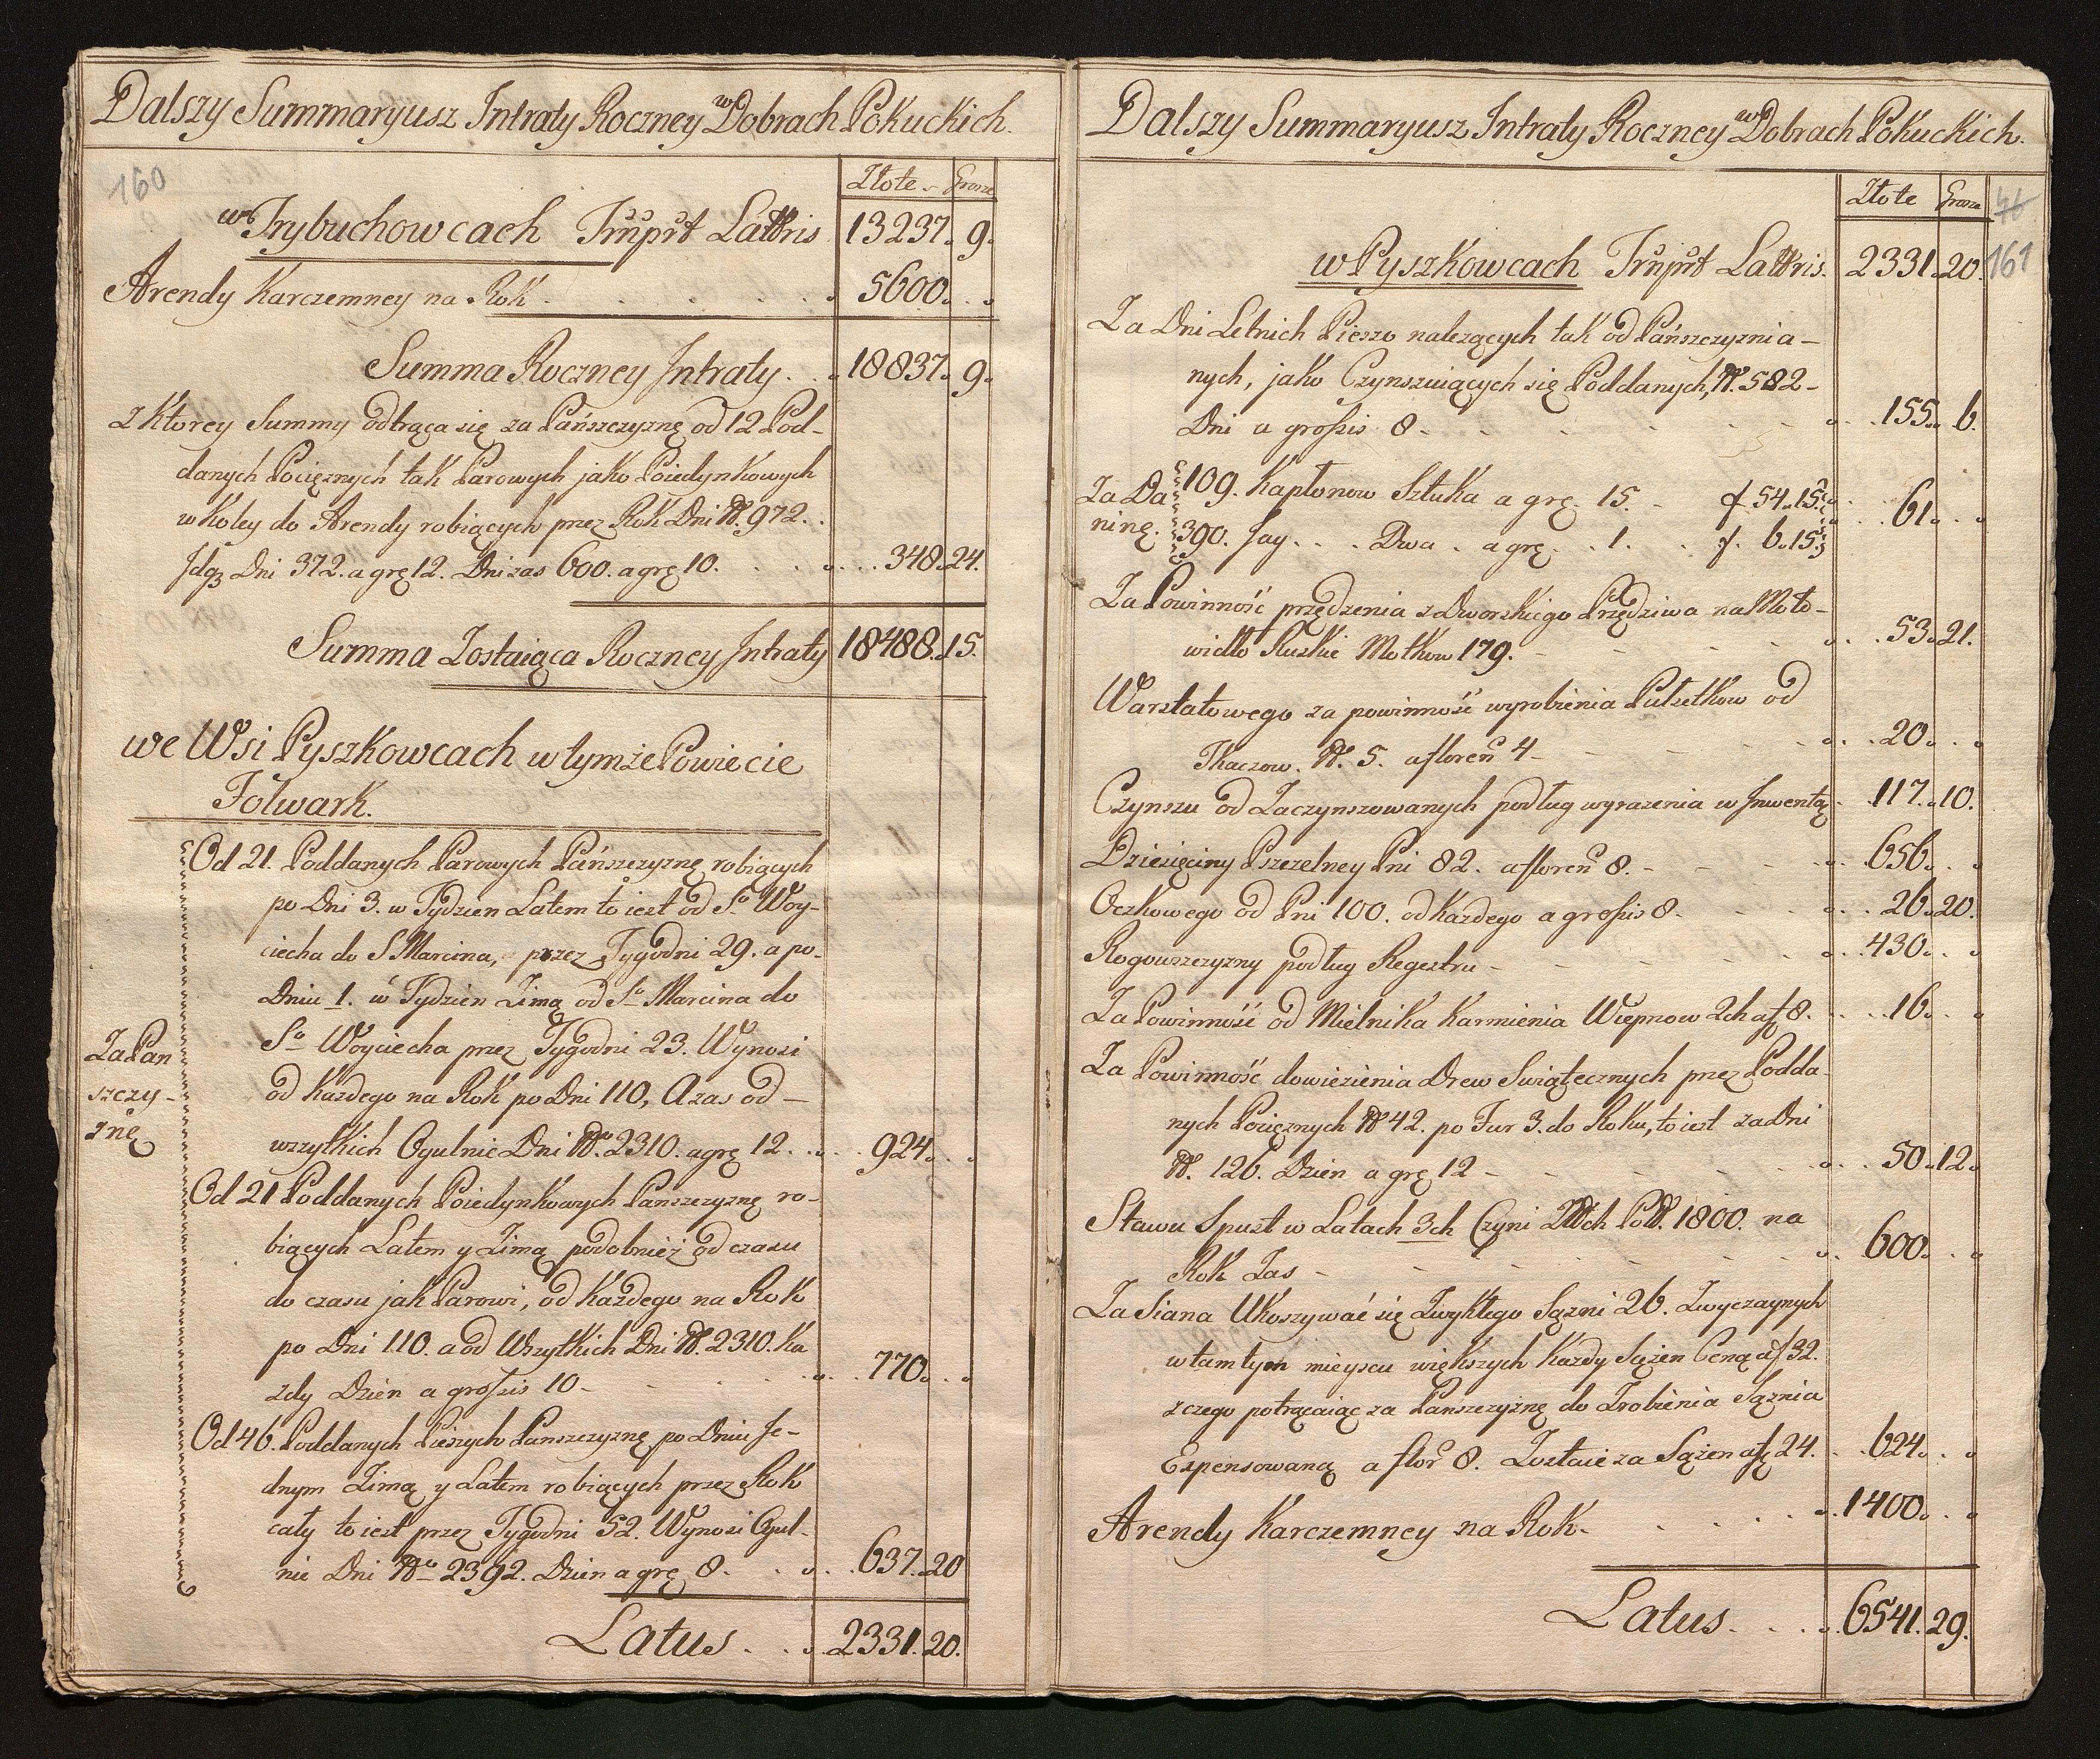 Dalszy Summaryusz Intraty Roczney w Dobrach Pokuckich.
160
Złote Grosze
w Trybuchowcach Trnprt Lattris 13237. 9.
Arendy Karczemney na Rok 5600.
Summa Roczney Intraty 18837. 9.
z Ktorey Summy odtrąca się za Pańszczyznę od 12 Pod-
danych Pociężnych tak Parowych jako Poiedynkowych
w Koley do Arendy robiących przez Rok Dni N. 972.
Idq3 Dni 372. a grę 12. Dni zas 600. a grę 10. 348. 24.
Summa Zostaiąca Roczney Intraty 18488. 15.
we Wsi Pyszkowcach w tymże Powiecie
Folwark.
Za Pan
szczy-
znę
Od 21. Poddanych Parowych Pańszczyznę robiących
po Dni 3. w Tydzien Latem to iest od So Woy-
ciecha do S Marcina, przez Tygodni 29. a po-
Dniu 1. w Tydzien Zimą od So Marcina do
So Woyciecha przez Tygodni 23. Wynosi
od Kazdego na Rok po Dni 110, A zas od-
wszytkich Ogulnie Dni No. 2310. a grę 12. 924.
Od 21 Poddanych Poiedynkowych Panszczyznę ro-
biących Latem y Zimą podobnież od czasu
do czasu jak Parowi, od Każdego na Rok
po Dni 110. a od Wszytkich Dni N. 2310. Ka
zdy Dzien a grossis 10 - 770.
Od 46. Poddanych Pieszych Panszczyznę po Dniu Je-
dnym Zimą y Latem robiących przez Rok
cały to iest przez Tygodni 52. Wynosi Ogul-
nie Dni No 2392. Dzien a grę 8. 637. 20
Latus 2331. 20.
Dalszy Summaryusz Intraty Roczney w Dobrach Pokuckich.
Złote Grosze 46
w Pyszkowcach Trnprt Lattris. 2331. 20. 161
Za Dni Letnich Pieszo nalezących tak od Pańszczyznia-
nych, jako Czynszuiących się Poddanych, N. 582-
Dni a grossis 8 - 155. 6.
Za Da 109. Kapłonow Sztuka a grę. 15. f 54. 15. 61.
ninę. 390. Jay. Dwa a grę 1. f. 6. 15.
Za Powinność przędzenia z Dworskiego Przędziwa na Moto-
widło Ruskie Motkow 179. 53. 21.
Warsztatowego za powinność wyrobienia Pułsetkow od
Tkaczow. N. 5. a floren 4 - 20.
Czynszu od Zaczynszowanych podług wyrazenia w Inwentą 117. 10.
Dziesięciny Pszczelney Pni 82. a floren 8. 656.
Oczkowego od Pni 100. od każdego a grossis 8. 26. 20.
Rogowszczyzny podług Regestru - 430.
Za Powinność od Mielnika Karmienia Wieprzow 2ch a f 8. 16.
Za Powinność dowiezienia Drew Swiątecznych przez Podda-
nych Pociężnych N 42. po Fur 3. do Roku, to iest za Dni
N. 126. Dzien a grę 12 - 50. 12.
Stawu Spust w Latach 3ch Czyni 1800. na
Rok Zas - 600.
Za Siana Ukoszywać się Zwykłego Sązni 26. Zwyczaynych
w tamtym mieyscu większych Kazdy Sązen Ceną a f 32.
z czego potrącaiąc za Panszczyznę do Zrobienia Sąznia
Expensowaną a flor 8. Zostaie za Sążen a f 24. 624.
Arendy Karczemney na Rok. 1400.
Latus. 6541. 29.